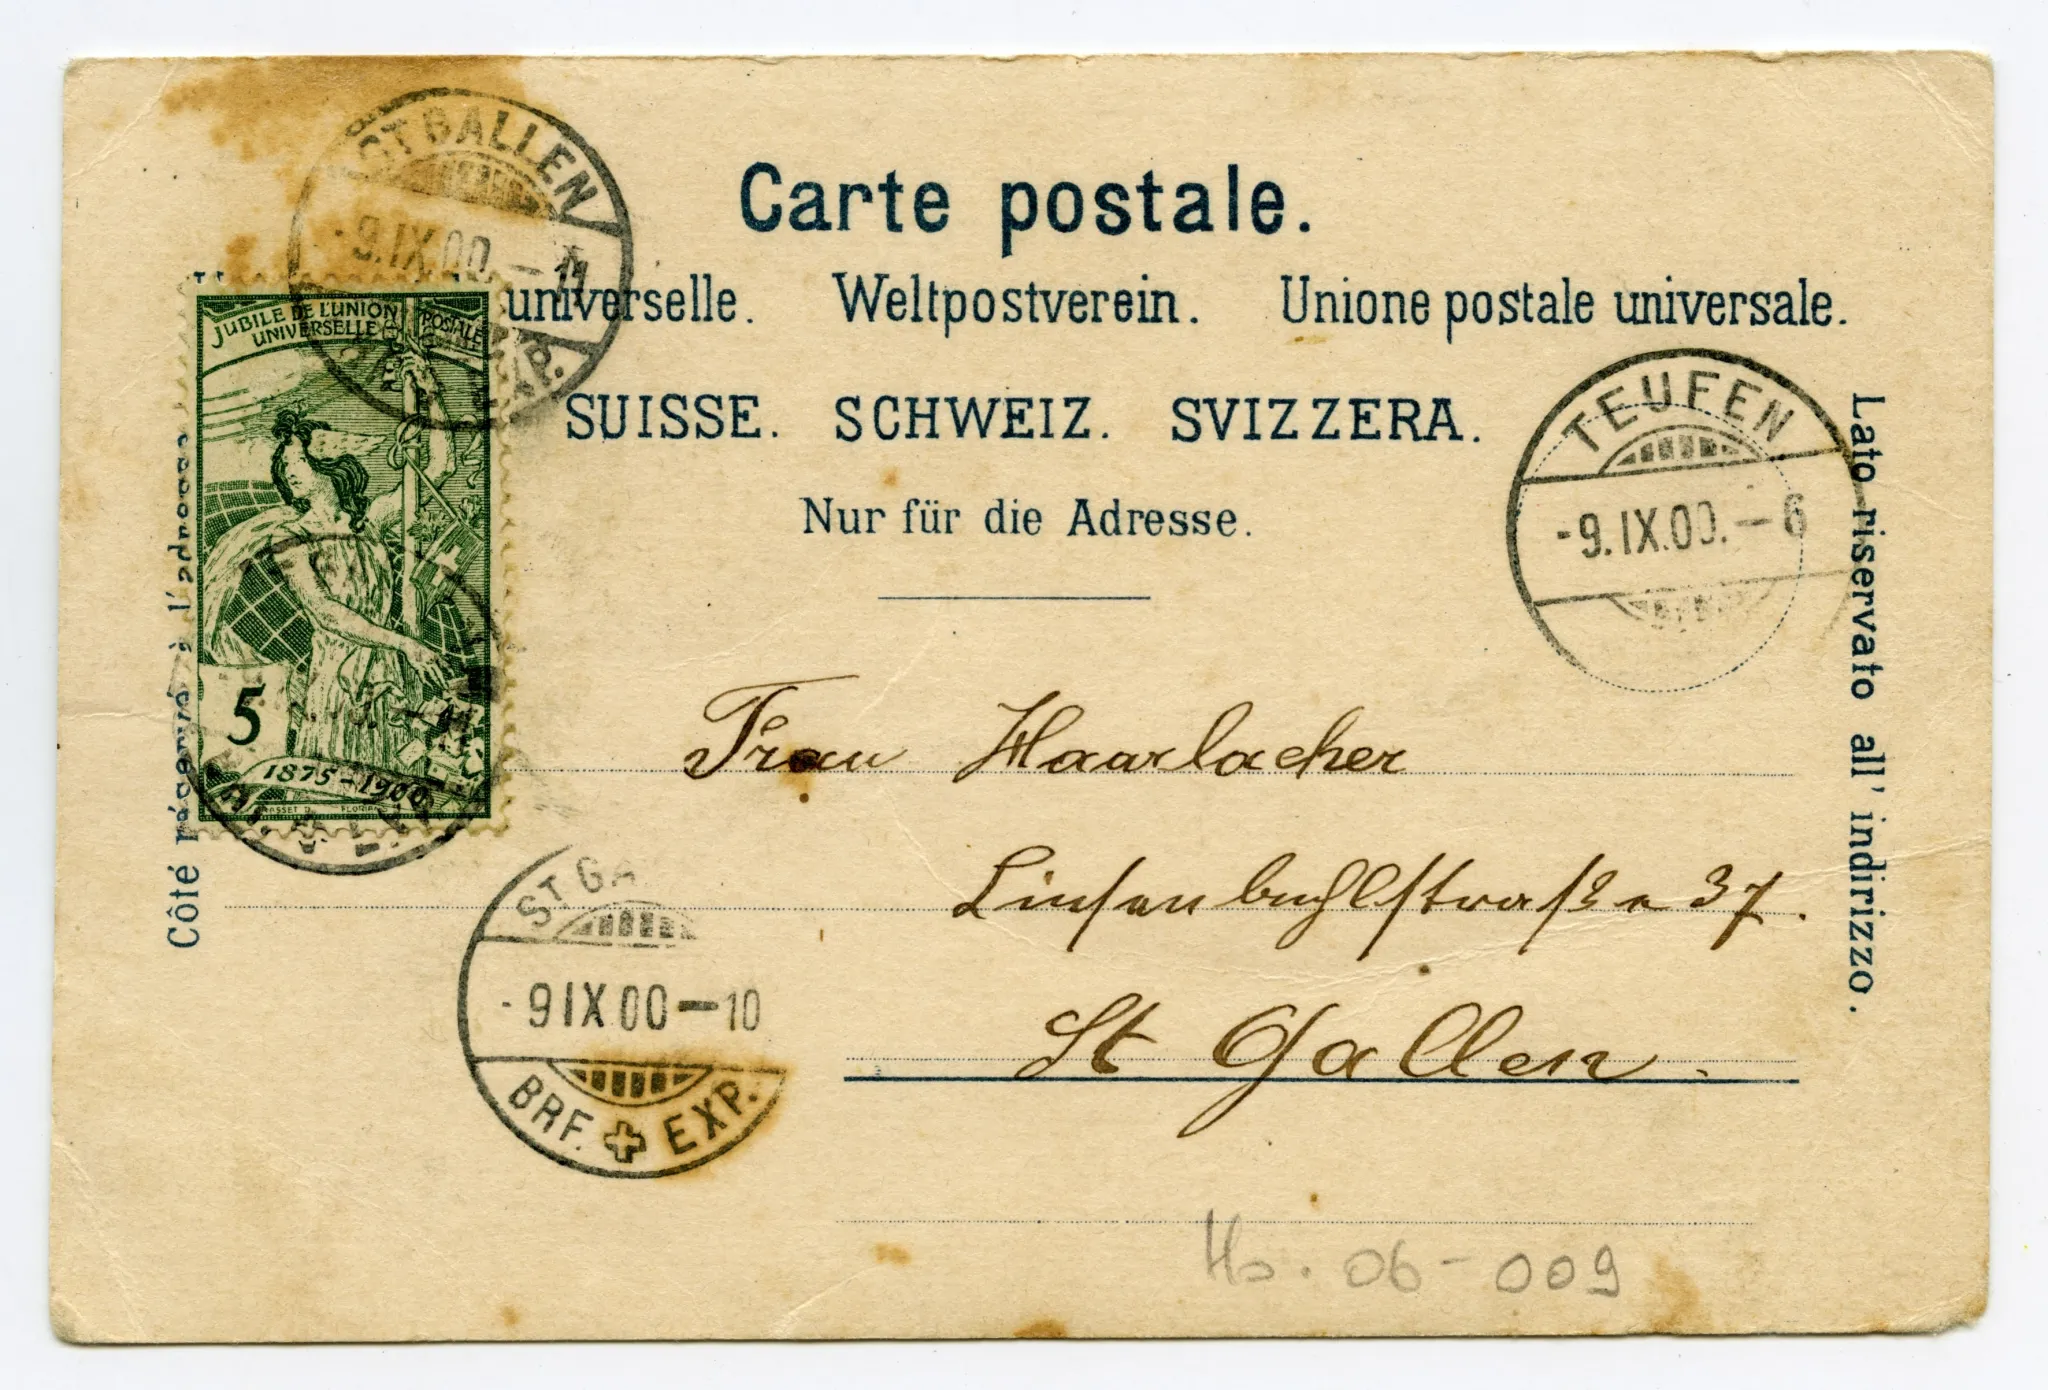 Carte postale.
universelle. Weltpostverein. Unione postale universale.
SUISSE. SCHWEIZ. SVIZZERA.
Nur für die Adresse.
Côté réservé à l'adresse
Lato riservato all' indirizzo.
ST GALLEN
-9.IX.00.-11
EXP.
JUBILE DE L'UNION POSTALE
UNIVERSELLE
5
1875-1900
TEUFEN
-9.IX.00.-6
-11
ST GA
-9 IX 00-10
BRF. EXP.
Frau Haarlacher
Linsenbuhlstraße 37.
St Gallen.
06-009